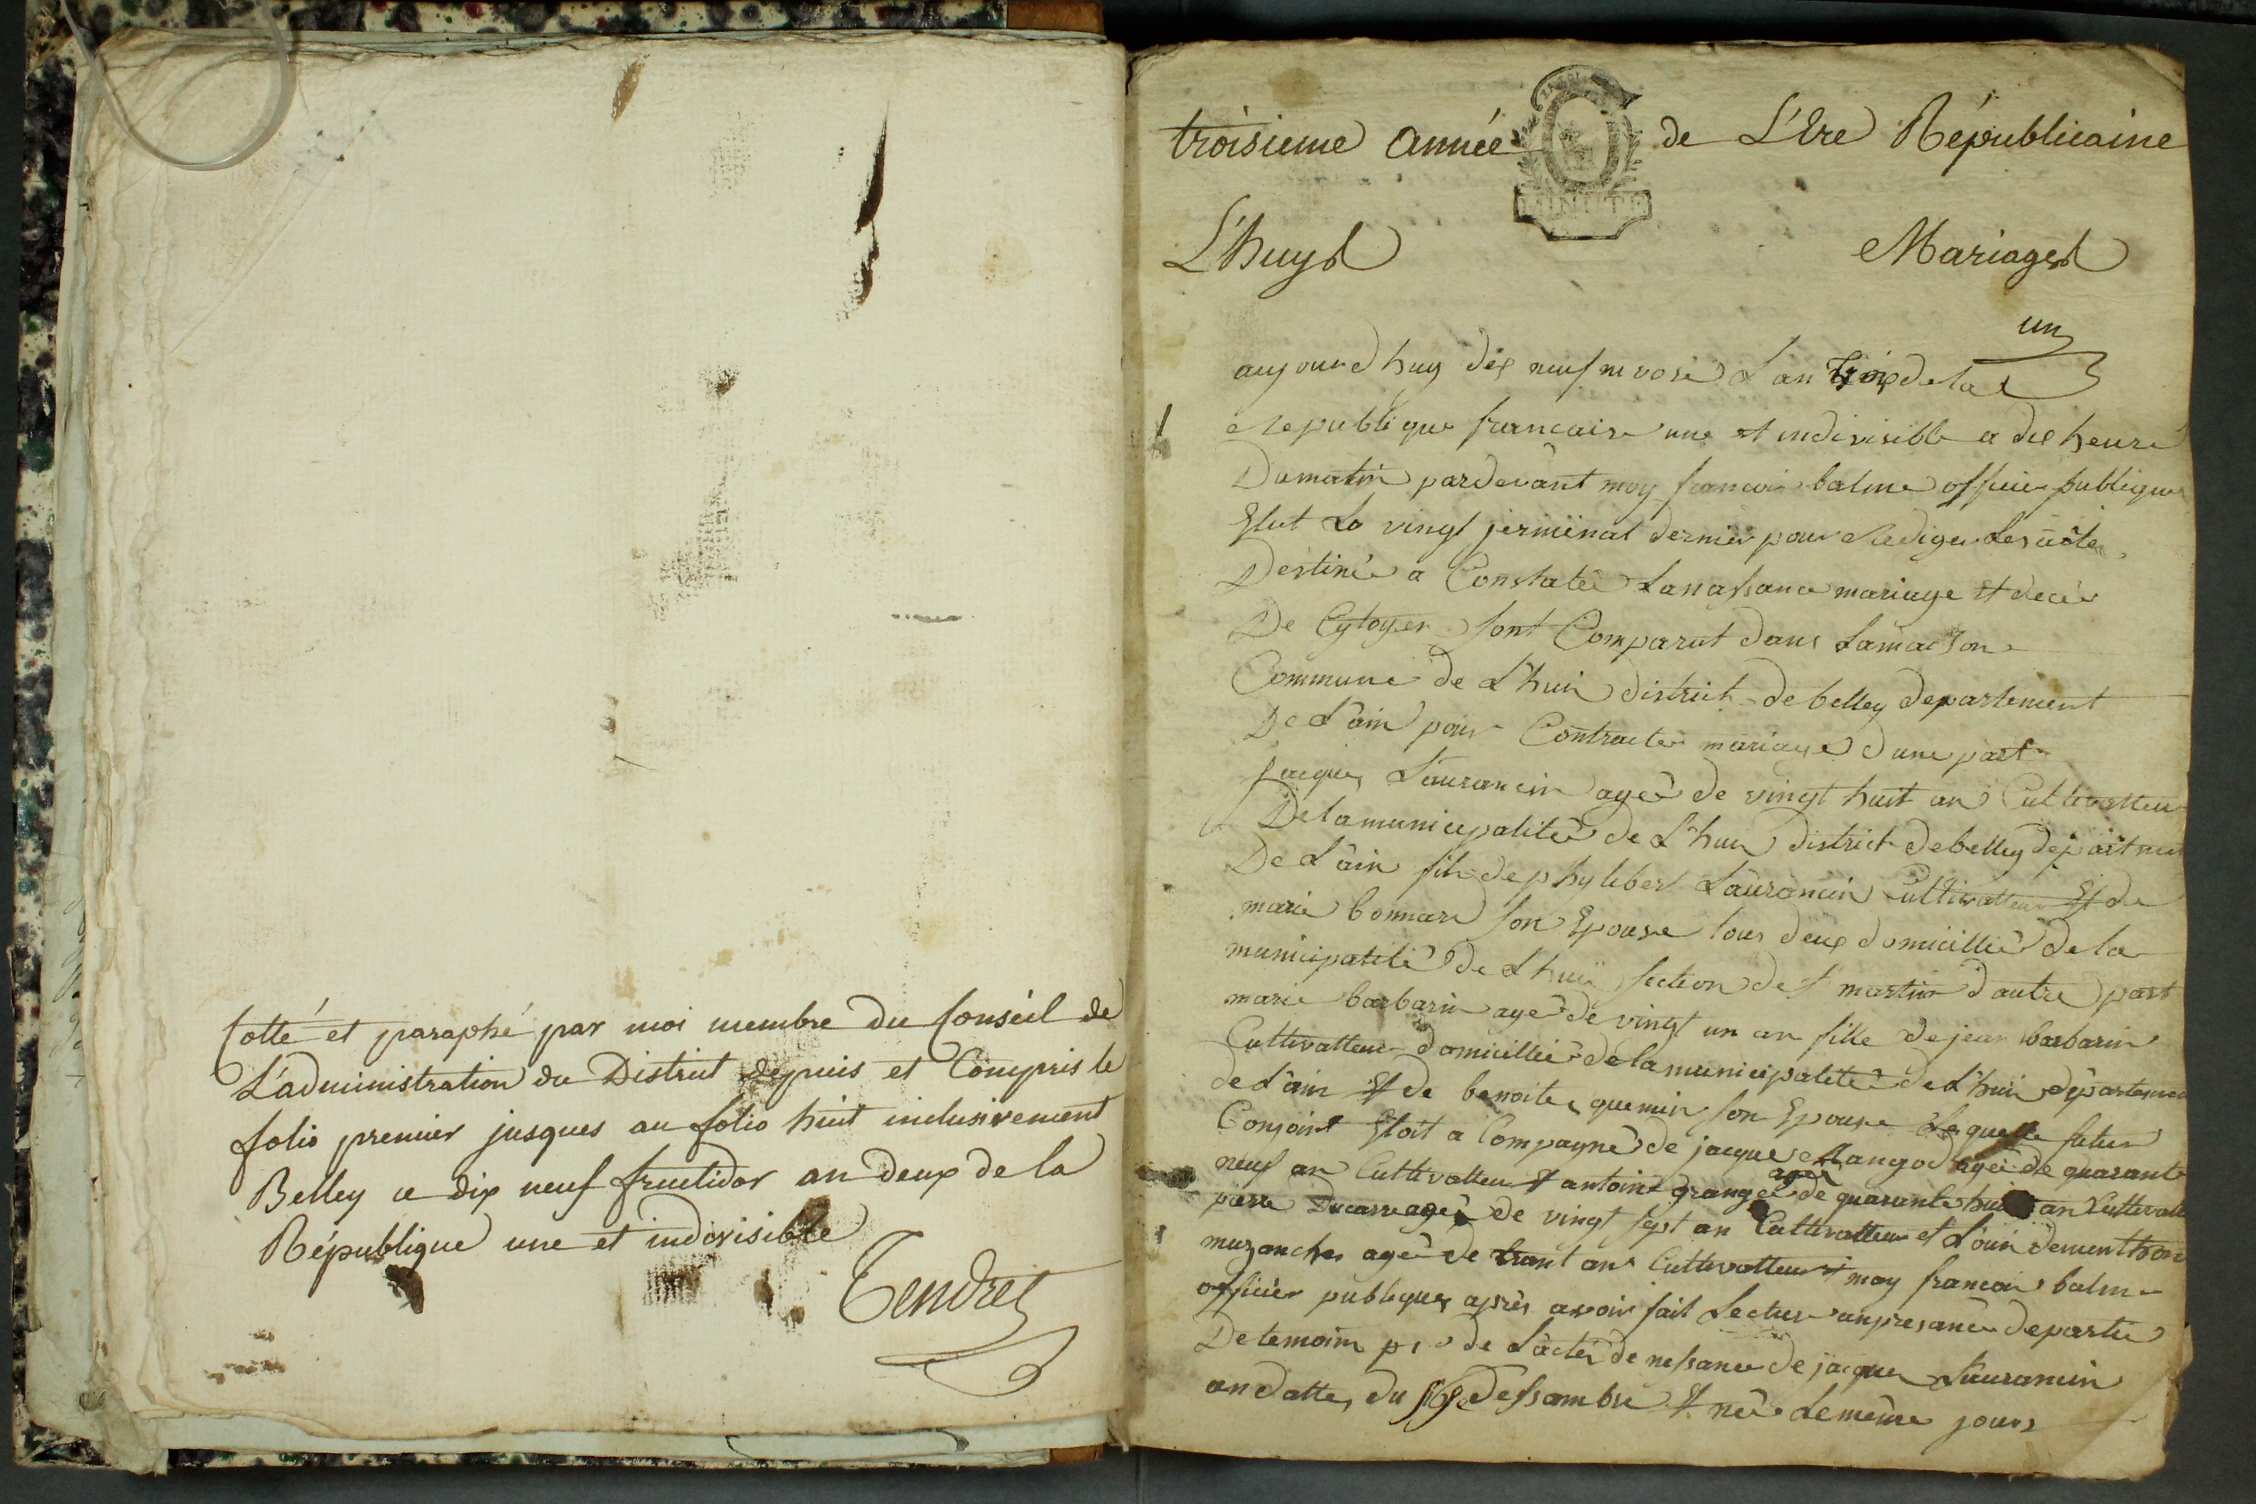 Cotté et paraphé par moi membre du Conseil de
L'administration du District depuis et Compris le
folio premier jusques au folio huit inclusivement
Belley ce dix neuf fructidor an deux de la
République une et indivisible
Tendret
troisieme année de L'Ere Républicaine
MINUTE
L'huys Mariages
un
aujourdhuy dix neuf nivose L'an trois de la
republique francaise une et indivisible a dix heure
Du matin pardevant moy francois balme officier publique
Elut Le vingt jerminal dernier pour Rediger Les acte
Destinée a Constatée La nassance mariage et décès
De Cytoyen sont Comparut dans Lamaison
Commune de L'hui district de belley departement
De L'ain pour Contracter mariage d'une part
Jacques Laurancin ageé de vingt huit an Cultivatteur
De la municipalitée de L'hui district de belley departement
De L'ain fils de phylibert Laurancin Cultivatteur Et de
marie bonnard son Epouse tous deux domicilliée de la
municipalité de L'hui section de st martin d'autre part
marie barbarin ageé de vingt un an fille de jean barbarin
Cultivatteur domicilliée de la municipalitée de L'hui département
de L'ain Et de benoite quemin son Epouse Laquelle futur
Conjoint Etoit a Compagné de jacque Mangod ageé de quarante
neuf an Cultivatteur et antoine grange ageé de quarante huit an
piere Ducarre ageé de vingt sept an Cultivatteur et Louis
ageé de trant ans Cultivatteur moy francois balme
officier publique après avoir fait Lecture anpresance de partie
De temoins de L'actée de nessance de jacque Laurancin
an datte du dessambre Et née Le même jour